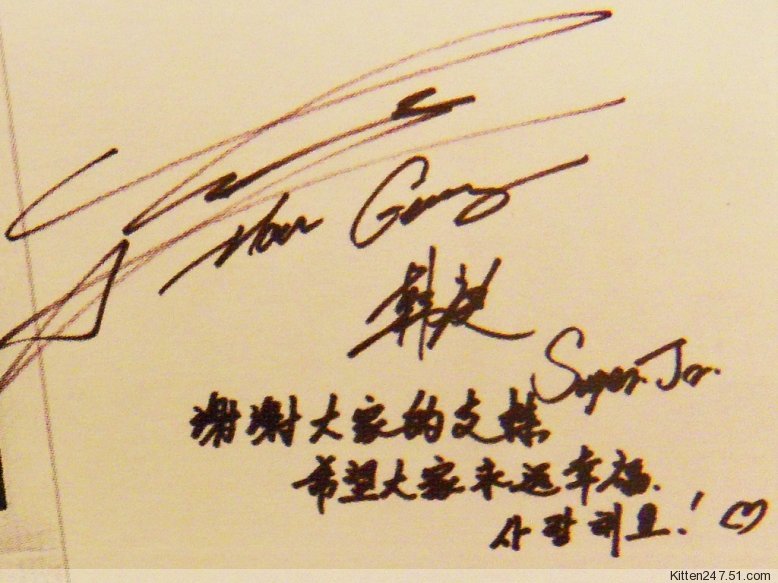 Han Geng
韩庚
Super Jr.
谢谢大家的支持
希望大家永远幸福.
사랑해요! ♡
Kitten247.51.com